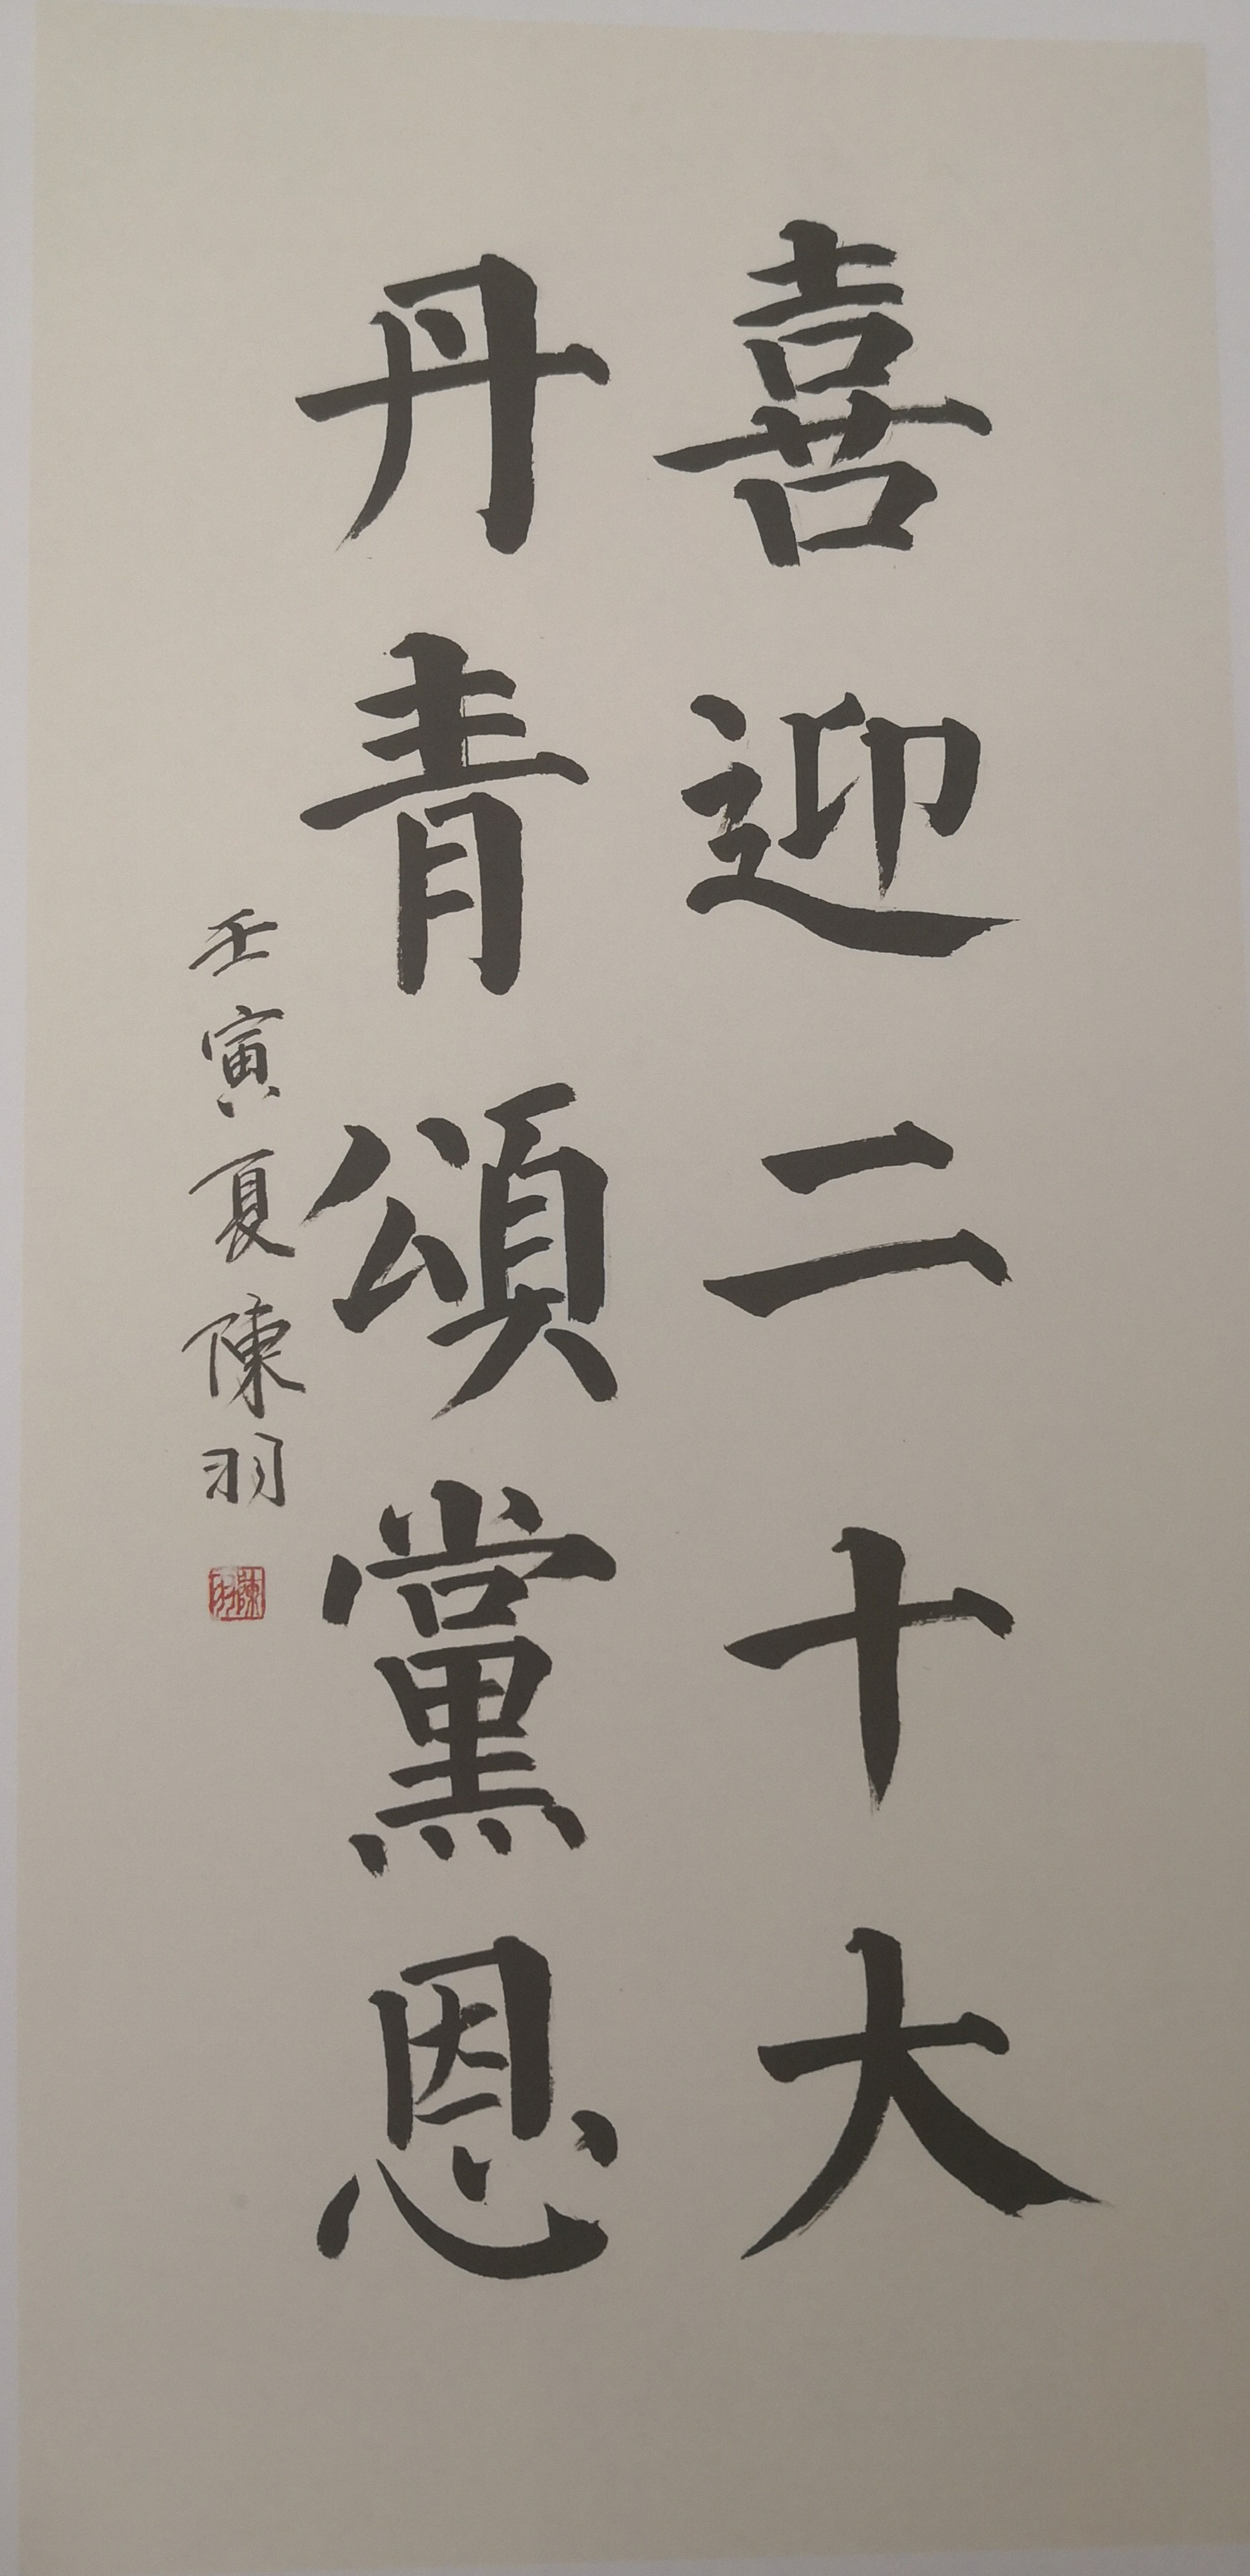 喜迎二十大
丹青頌黨恩
壬寅夏陳羽
陳羽